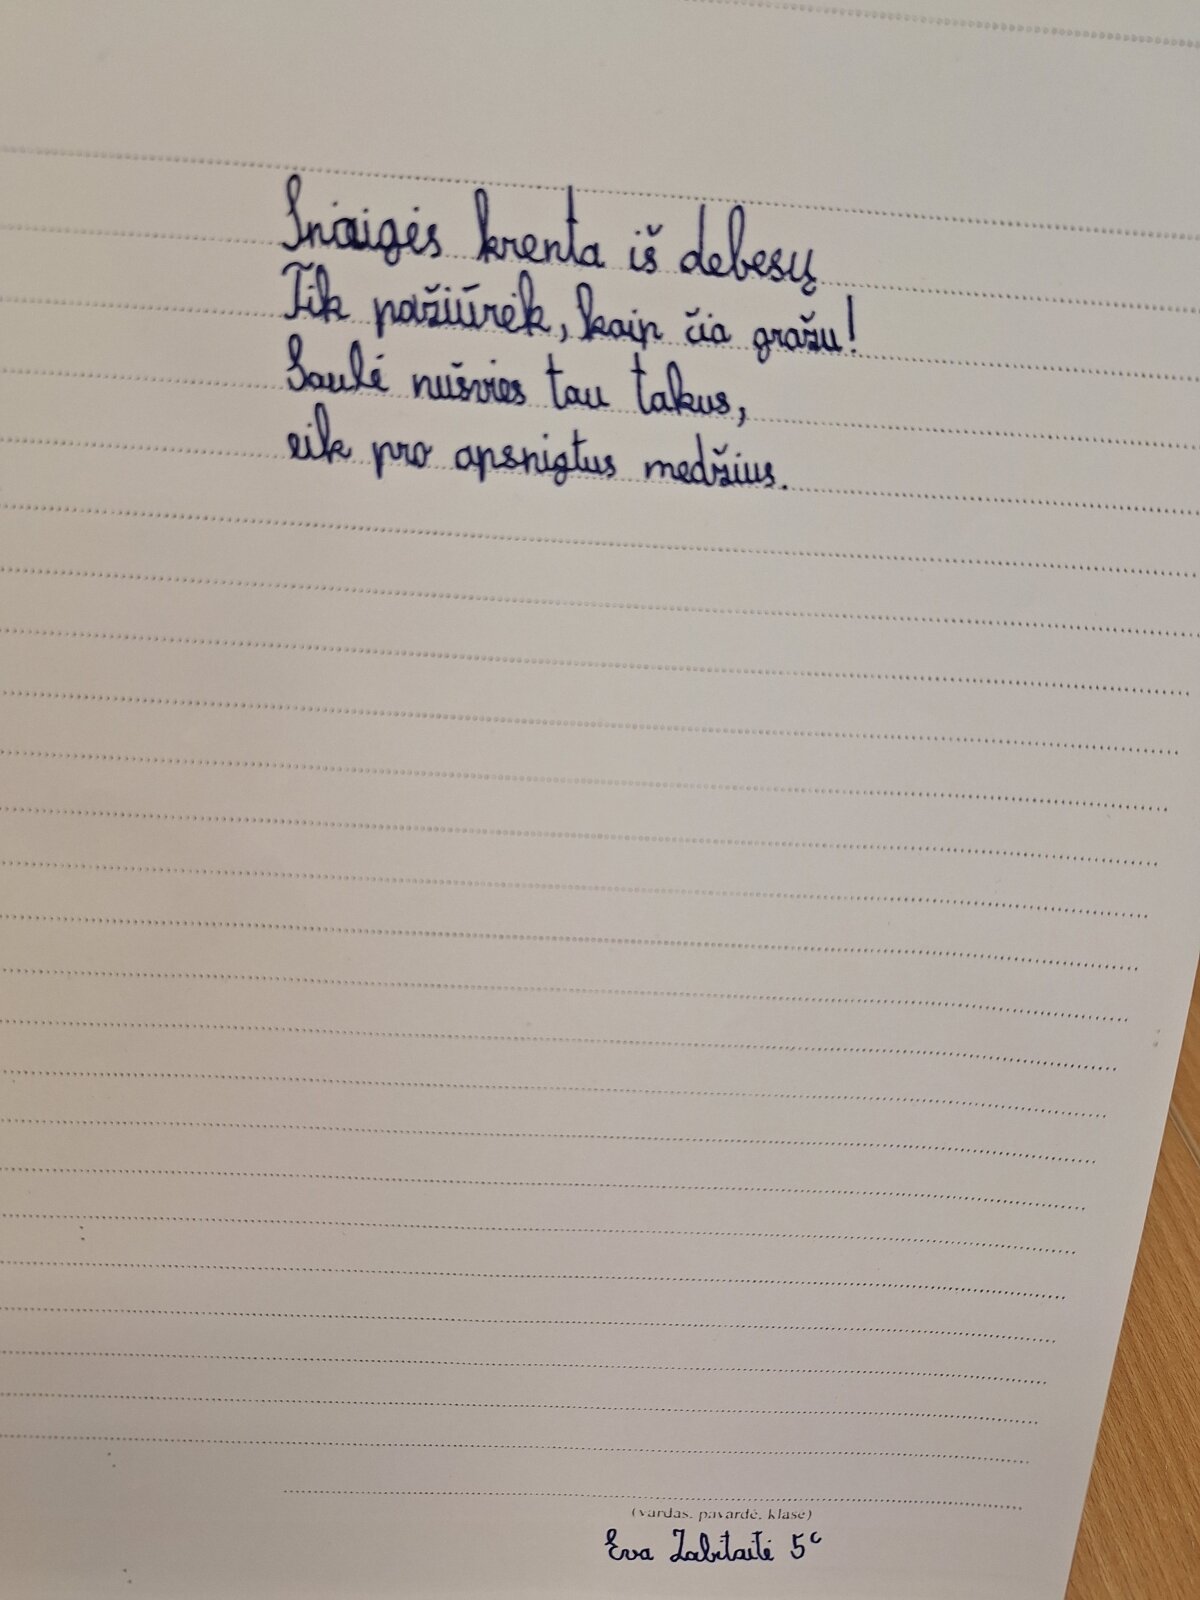 Snaigės krenta iš debesų
Tik pažiūrėk, kaip čia gražu!
Saulė nušvies tau takus,
eik pro apsnigtus medžius.
(vardas, pavardė, klasė)
Eva Zabitaitė 5c